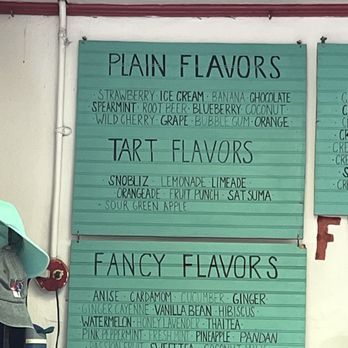 PLAIN FLAVORS
STRAWBERRY · ICE CREAM · BANANA CHOCOLATE
SPEARMINT · ROOT BEER · BLUEBERRY COCONUT ·
WILD CHERRY · GRAPE · BUBBLE GUM · ORANGE ·
TART FLAVORS
SNOBLIZ · LEMONADE LIMEADE
ORANGEADE · FRUIT PUNCH · SATSUMA
· SOUR GREEN APPLE
FANCY FLAVORS
ANISE · CARDAMOM · CUCUMBER · GINGER ·
GINGER CAYENNE · VANILLA BEAN · HIBISCUS ·
WATERMELON · HONEY LAVENDER · THAI TEA ·
PINK PEPPERMINT · FRESH MINT · PINEAPPLE · PANDAN
F